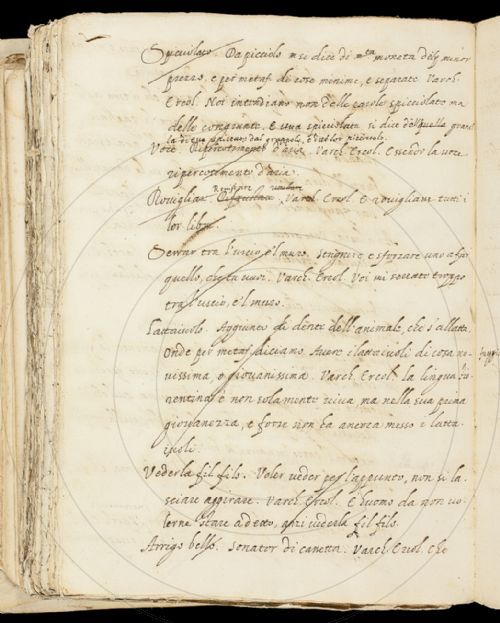 Spicciolato. Da picciolo si dice di moneta del minor
prezzo, e per metaf. di cose minime, e separate. Varch.
Ercol. Noi intendiamo non delle parole spicciolate ma
delle congiunte. E uva spicciolata si dice quella
spiccati dal grappolo, e dal lor picciuolo
Voce. Ripercotimento d'aria. Varch. Ercol. Essendo la voce
ripercotimento d'aria.
Rovistare
Rovigliare. Varch. Ercol. E rovigliare tutti i
lor libri.
Serrar tra l'uscio e 'l muro. Strignere e sforzare uno a far
quello, che tu vuoi. Varch. Ercol. Voi mi serrate troppo
tra l'uscio, e 'l muro.
Lattaiuolo. Aggiunto di dente dell'animale, che s'allatta.
Onde per metaf. diciamo. Avere i lattaiuoli di cosa no-
vissima, o giovanissima. Varch. Ercol. la lingua fio-
rentina è non solamente viva ma nella sua prima
giovanezza, e forse non ha ancora messo i latta-
iuoli.
Vederla fil filo. Voler veder per l'appunto, non si la-
sciare aggirare. Varch. Ercol. È huomo da non vo-
lerne stare a detto, anzi vederla fil filo.
Arrigo bello. Sonator di . Varch. Ercol. Che